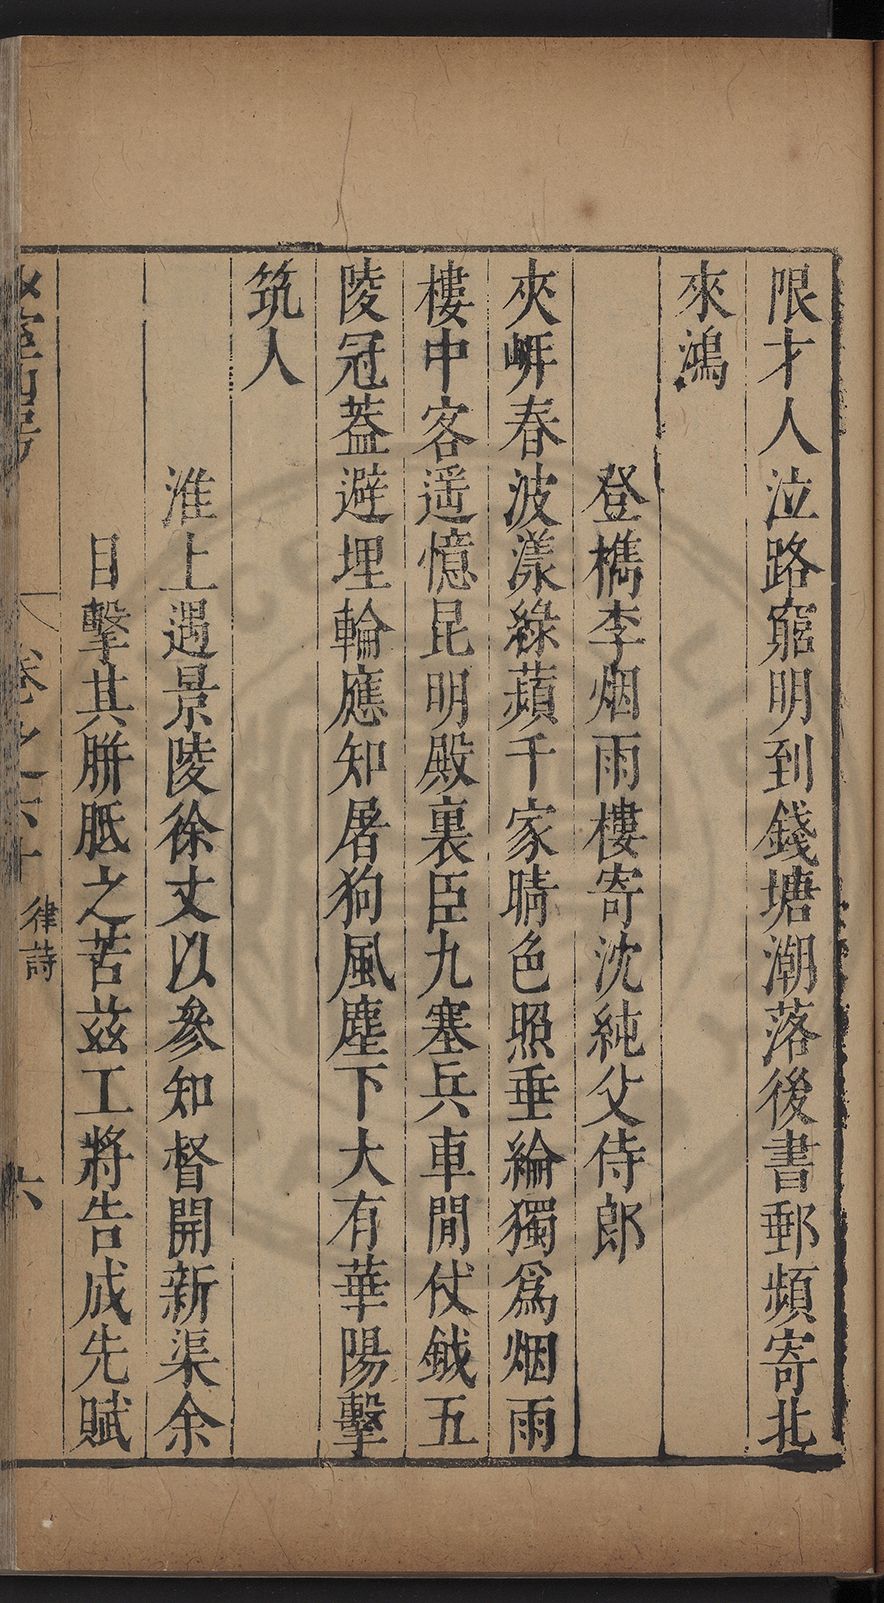 限才人泣路窮明到錢塘潮落後書郵頻寄北
來鴻
登檇李烟雨樓寄沈純父侍郎
夾㟁春波漾綠蘋千家晴色照垂綸獨爲烟雨
樓中客遥憶昆明殿裏臣九塞兵車閒伏鉞五
陵冠蓋避埋輪應知屠狗風塵下大有華陽擊
筑人
淮上遇景陵徐丈以參知督開新渠余
目擊其胼胝之苦兹工將告成先賦
卷之六十 律詩 六